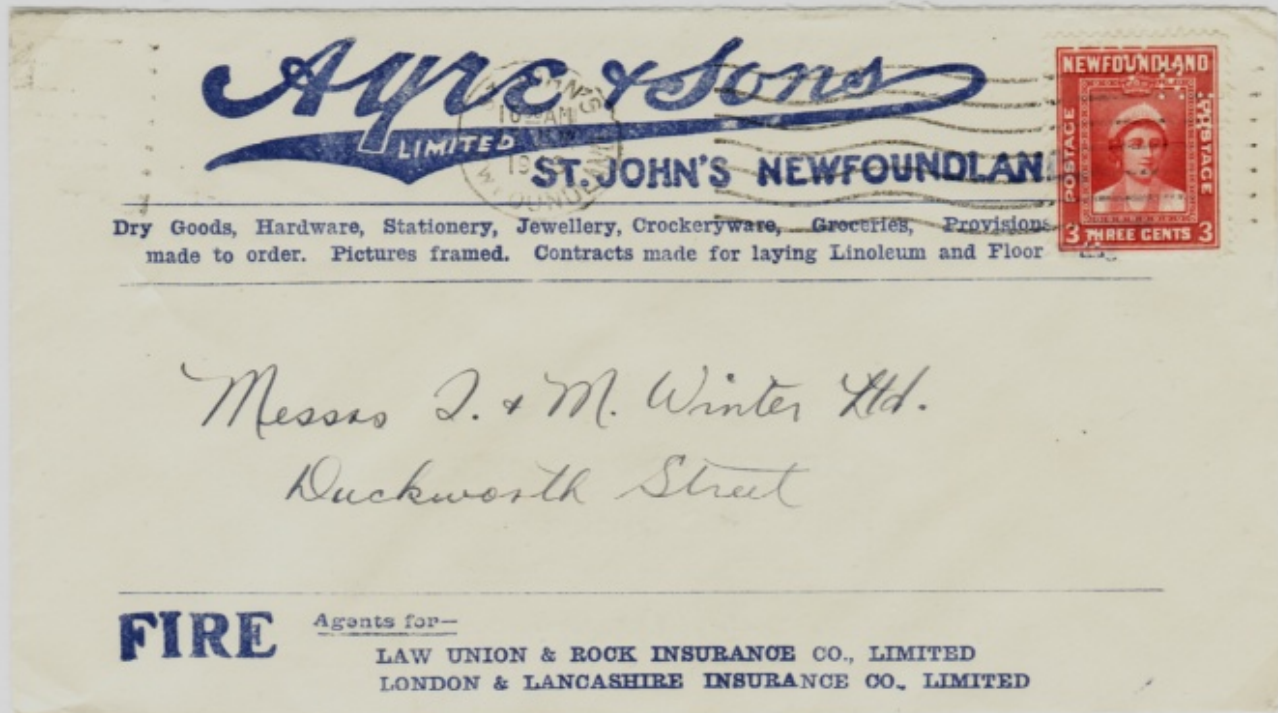 Ayre & Sons
LIMITED
ST. JOHN'S NEWFOUNDLAN
10 AM
19
NEWFOUNDLAND
POSTAGE
POSTAGE
3 THREE CENTS 3
Dry Goods, Hardware, Stationery, Jewellery, Crockeryware, Groceries, Provisions
made to order. Pictures framed. Contracts made for laying Linoleum and Floor
Messrs T. & M. Winter Ltd.
Duckworth Street
FIRE Agents for—
LAW UNION & ROCK INSURANCE CO., LIMITED
LONDON & LANCASHIRE INSURANCE CO., LIMITED